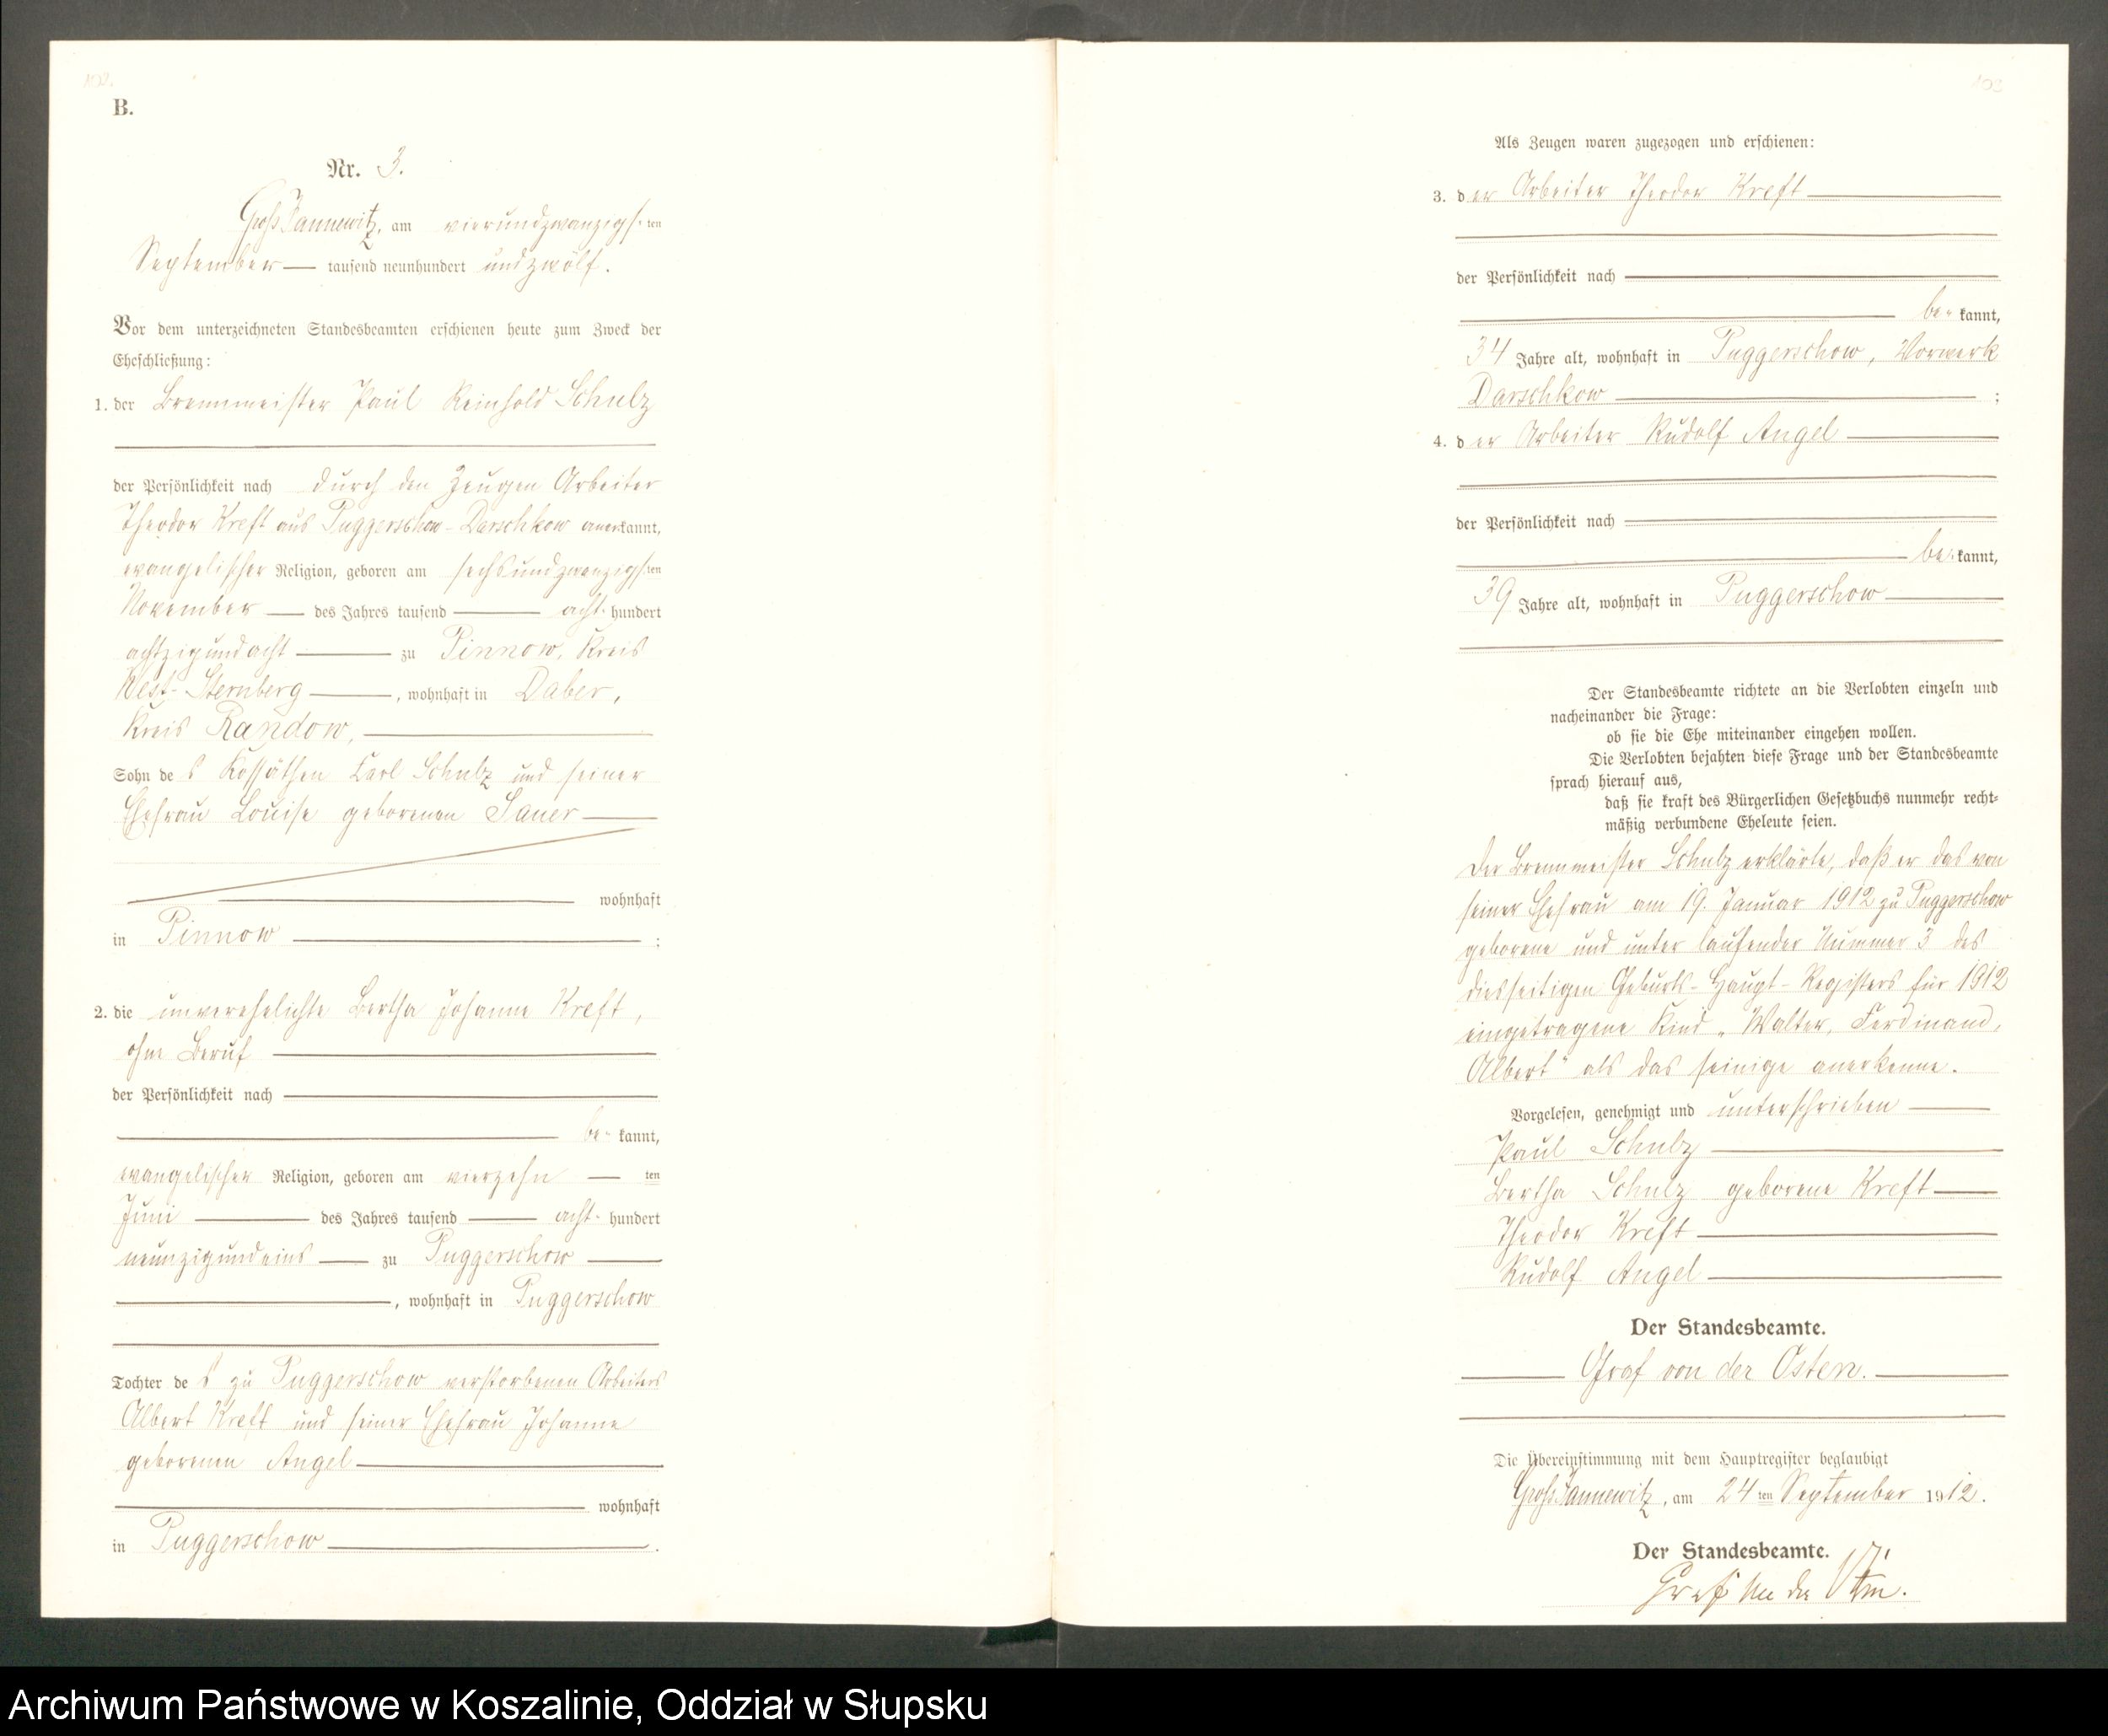 102.
B.
Nr. 3.
Groß Jannewitz, am vierundzwanzigsten
September — tausend neunhundert und zwölf.
Vor dem unterzeichneten Standesbeamten erschienen heute zum Zweck der
Eheschließung:
1. der Brennmeister Paul Reinhold Schulz
der Persönlichkeit nach durch den Zeugen Arbeiter
Theodor Kreft aus Puggerschow-Darschkow anerkannt,
evangelischer Religion, geboren am sechsundzwanzigsten
November — des Jahres tausend — acht hundert
achtzigundacht — zu Pinnow, Kreis
West-Sternberg —, wohnhaft in Daber,
Kreis Randow, —
Sohn des Kossäthen Carl Schulz und seiner
Ehefrau Louise geborenen Sauer —
wohnhaft
in Pinnow — ;
2. die unverehelichte Bertha Johanne Kreft,
ohne Beruf —
der Persönlichkeit nach —
— be- kannt,
evangelischer Religion, geboren am vierzehn — ten
Juni — des Jahres tausend — acht- hundert
neunzigundeins — zu Puggerschow —
—, wohnhaft in Puggerschow
Tochter des zu Puggerschow verstorbenen Arbeiters
Albert Kreft und seiner Ehefrau Johanne
geborenen Angel —
— wohnhaft
in Puggerschow — .
103
Als Zeugen waren zugezogen und erschienen:
3. der Arbeiter Theodor Kreft —
der Persönlichkeit nach —
— be- kannt,
34 Jahre alt, wohnhaft in Puggerschow, Vorwerk
Darschkow — ;
4. der Arbeiter Rudolf Angel —
der Persönlichkeit nach —
— be- kannt,
39 Jahre alt, wohnhaft in Puggerschow —
Der Standesbeamte richtete an die Verlobten einzeln und
nacheinander die Frage:
ob sie die Ehe miteinander eingehen wollen.
Die Verlobten bejahten diese Frage und der Standesbeamte
sprach hierauf aus,
daß sie kraft des Bürgerlichen Gesetzbuchs nunmehr recht-
mäßig verbundene Eheleute seien.
Der Brennmeister Schulz erklärte, daß er das von
seiner Ehefrau am 19. Januar 1912 zu Puggerschow
geborene und unter laufender Nummer 3 des
diesseitigen Geburts-Haupt-Registers für 1912
eingetragene Kind „Walter, Ferdinand,
Albert" als das seinige anerkenne.
Vorgelesen, genehmigt und unterschrieben —
Paul Schulz —
Bertha Schulz geborene Kreft —
Theodor Kreft —
Rudolf Angel —
Der Standesbeamte.
— Graf von der Osten. —
Die Übereinstimmung mit dem Hauptregister beglaubigt
Groß Jannewitz, am 24ten September 1912.
Der Standesbeamte.
Graf von der Osten.
Archiwum Państwowe w Koszalinie, Oddział w Słupsku